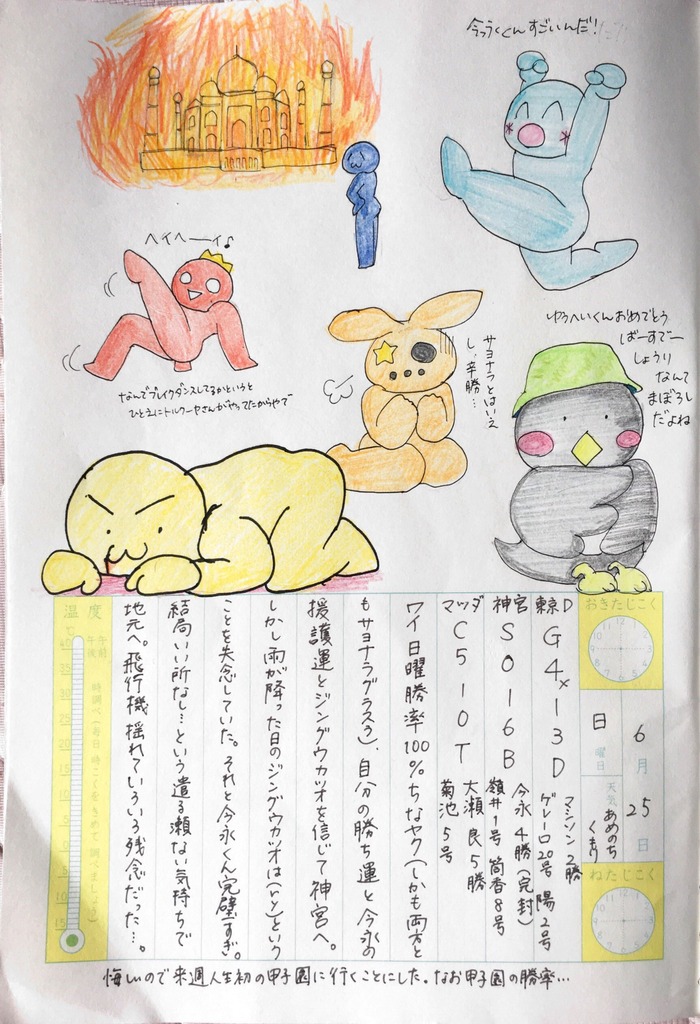 今つうくんすごいんだ!
ヘイヘーーイ♪
なんでブレイクダンスしてるかというと
ひとえにトルクーヤさんがやってたからやで
サヨナラとはいえ
し、辛勝…
ゆうへいくんおめでとう
ばーすでー
しょうり
なんて
まぼろし
だよね
おきたじこく
6月25日
日曜日
天気 あめのちくもり
ねたじこく
東京D G4×13D マシソン2勝 ゲレーロ20号 陽2号
神宮 S016B 今永4勝(完封) 嶺井1号 筒香8号
マツダ C510T 大瀬良5勝 菊池5号
ワイ日曜勝率100%ちなヤク(しかも両方と
もサヨナラグラスラ)、自分の勝ち運と今永の
援護運とジングウカツオを信じて神宮へ。
しかし雨が降った日のジングウカツオは(ry)という
ことを失念していた。それと今永くん完璧すぎ。
結局いい所なし…という遣る瀬ない気持ちで
地元へ。飛行機揺れていろいろ残念だった…。
温度
℃
午前
午後
時調べ(毎日時こくをきめて調べましょう)
悔しいので来週人生初の甲子園に行くことにした。なお甲子園の勝率…